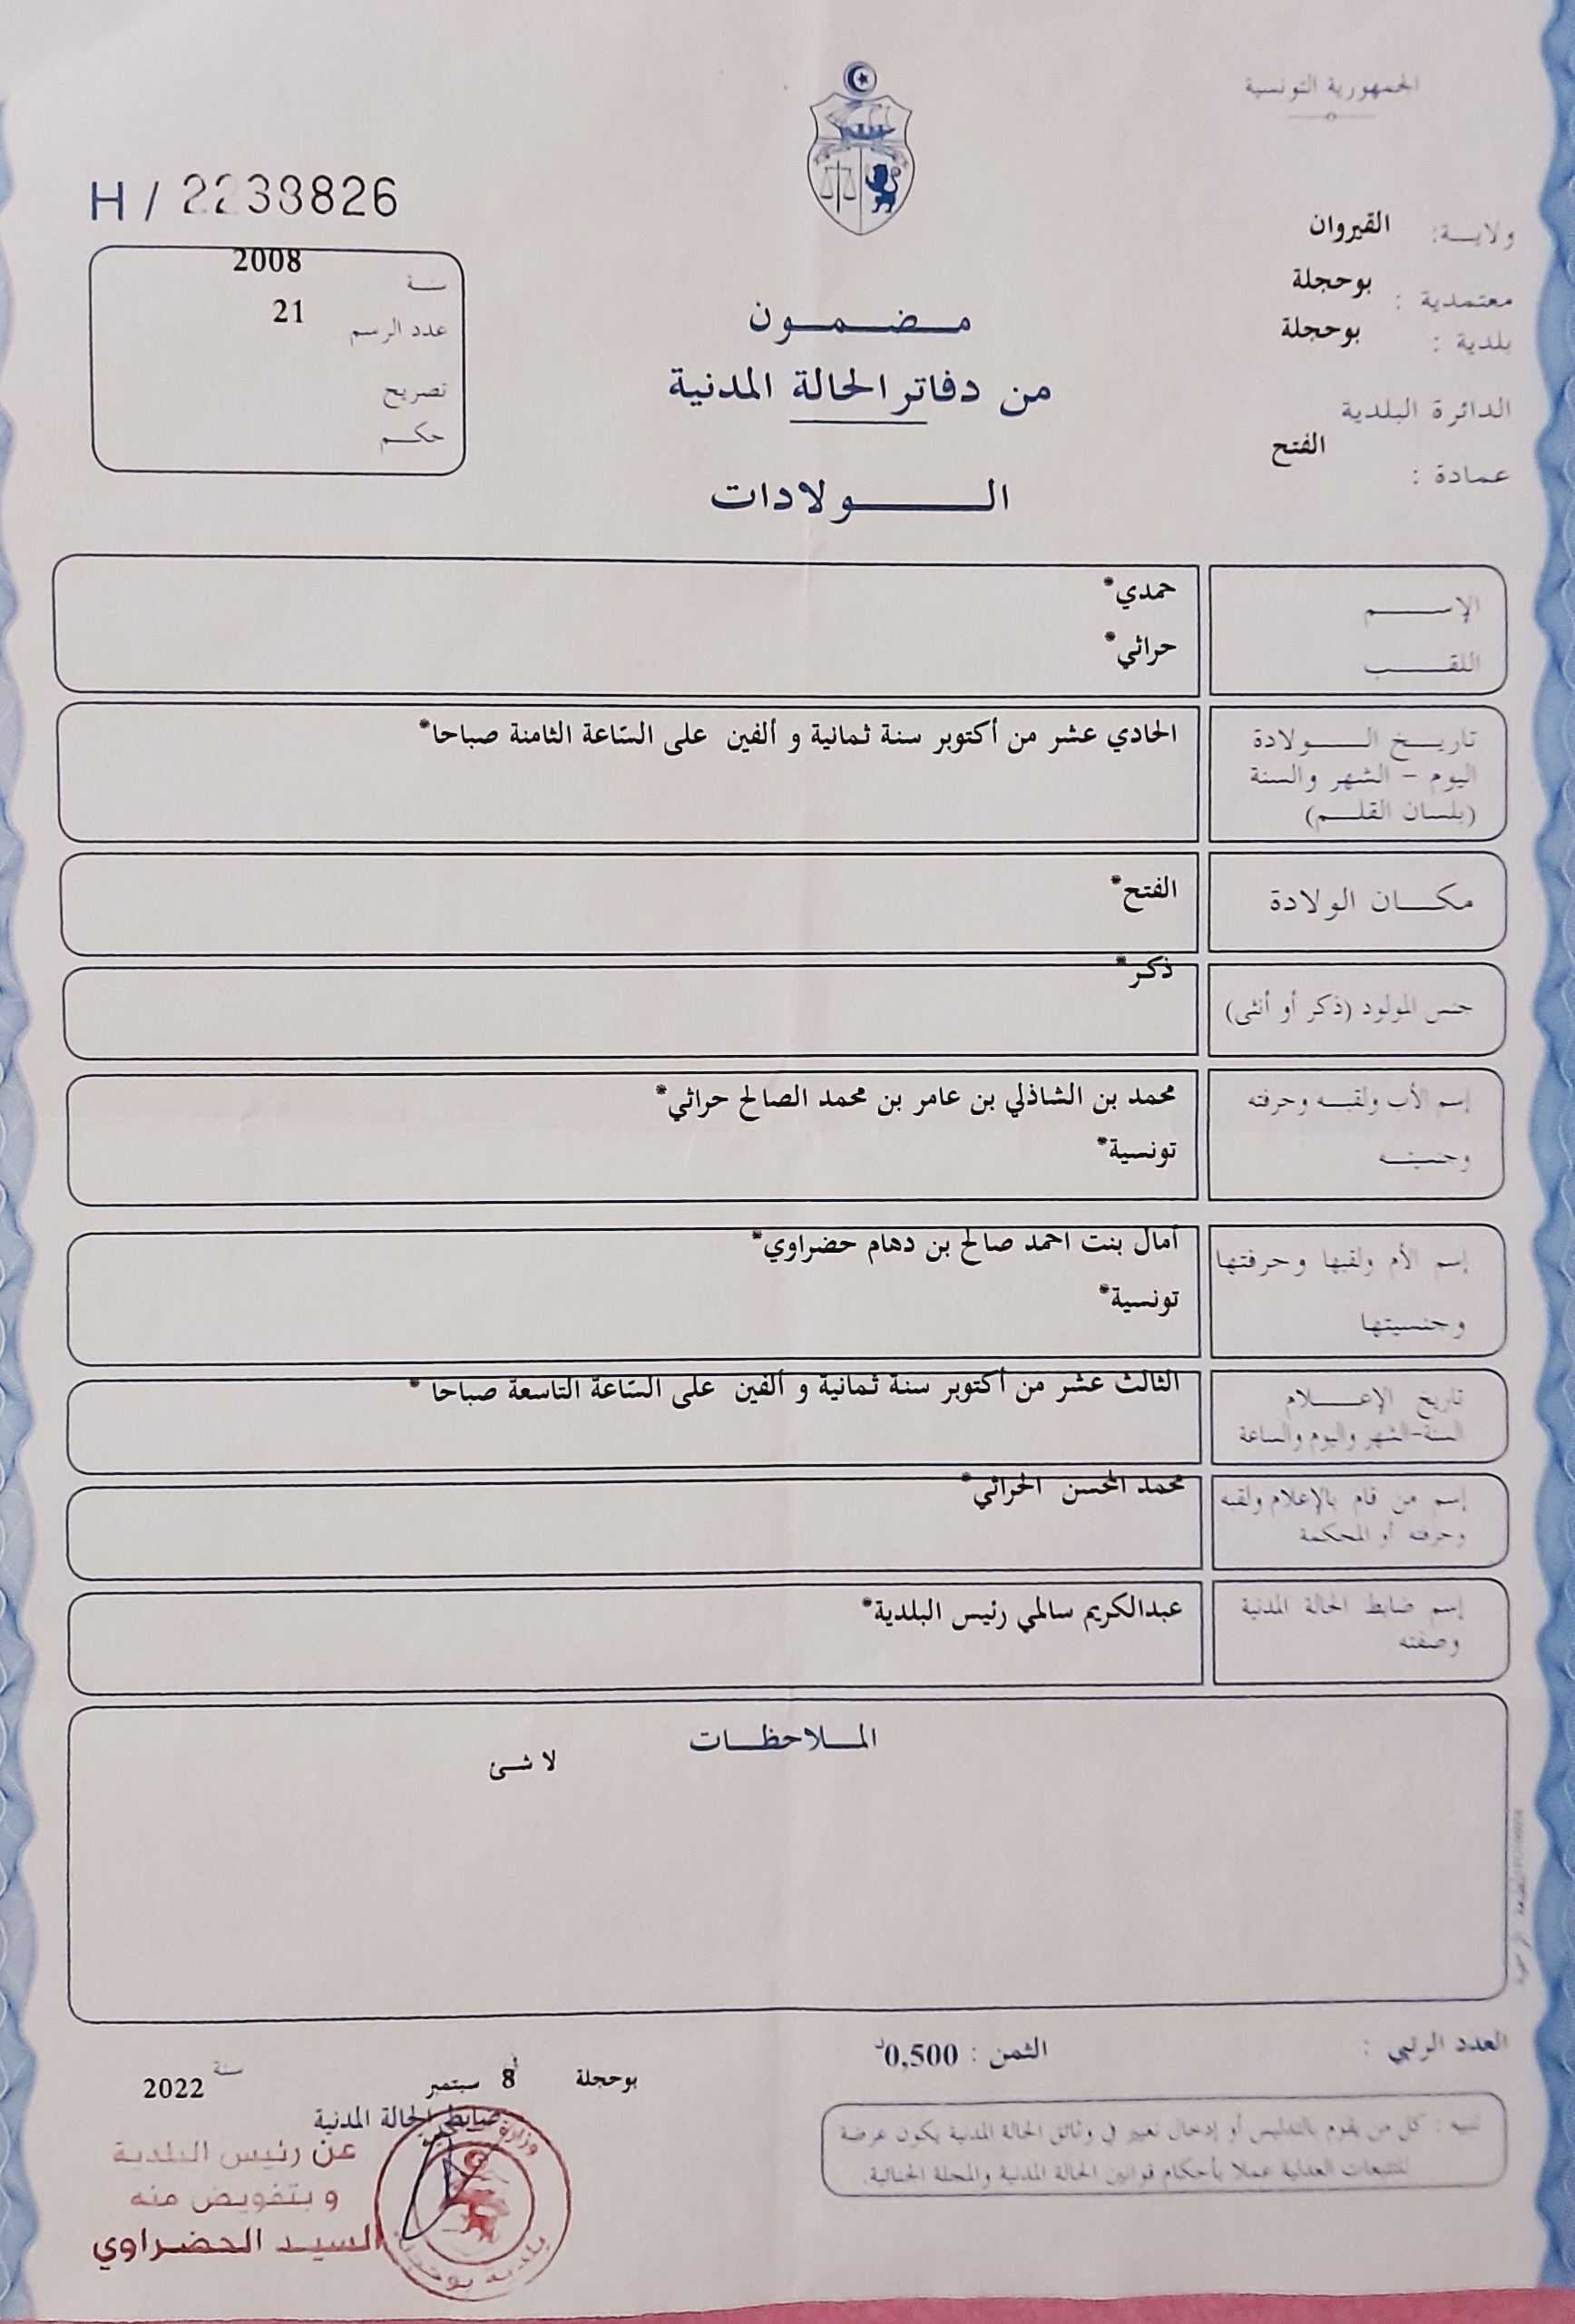 الجمهورية التونسية
H / 2238826
ولايـــة: القيروان
معتمدية : بوحجلة
بلدية : بوحجلة
الدائرة البلدية
عمادة : الفتح
سنة 2008
عدد الرسم 21
تصريح
حكم
مـضـمـون
من دفاتر الحالة المدنية
الــولادات
الإســم حمدي*
اللقــب حراثي*
تاريــخ الــولادة الحادي عشر من أكتوبر سنة ثمانية و ألفين على السّاعة الثامنة صباحا*
اليوم - الشهر والسنة
(بلسان القلــم)
مكــان الولادة الفتح*
جنس المولود (ذكر أو أنثى) ذكر*
إسم الأب ولقبــه وحرفته محمد بن الشاذلي بن عامر بن محمد الصالح حراثي*
وجنسيتــه تونسية*
إسم الأم ولقبها وحرفتها أمال بنت احمد صالح بن دهام حضراوي*
وجنسيتها تونسية*
تاريخ الإعــلام الثالث عشر من أكتوبر سنة ثمانية و ألفين على السّاعة التاسعة صباحا *
السنة-الشهر واليوم والساعة
إسم من قام بالإعلام ولقبه محمد المحسن الحراثي*
وحرفته أو المحكمة
إسم ضابط الحالة المدنية عبدالكريم سالمي رئيس البلدية*
وصفته
المــلاحظــات
لا شئ
العدد الرتبي :
الثمن : 0,500د
بوحجلة في 8 سبتمبر سنة 2022
ضابط الحالة المدنية
تنبيه : كل من يقوم بالتدليس أو إدخال تغيير في وثائق الحالة المدنية يكون عرضة
للتتبعات العدلية عملا بأحكام قوانين الحالة المدنية والمجلة الجنائية.
عن رئيس البلدية
و بتفويض منه
السيـد الحضراوي
وزارة
بلدية بوحجلة